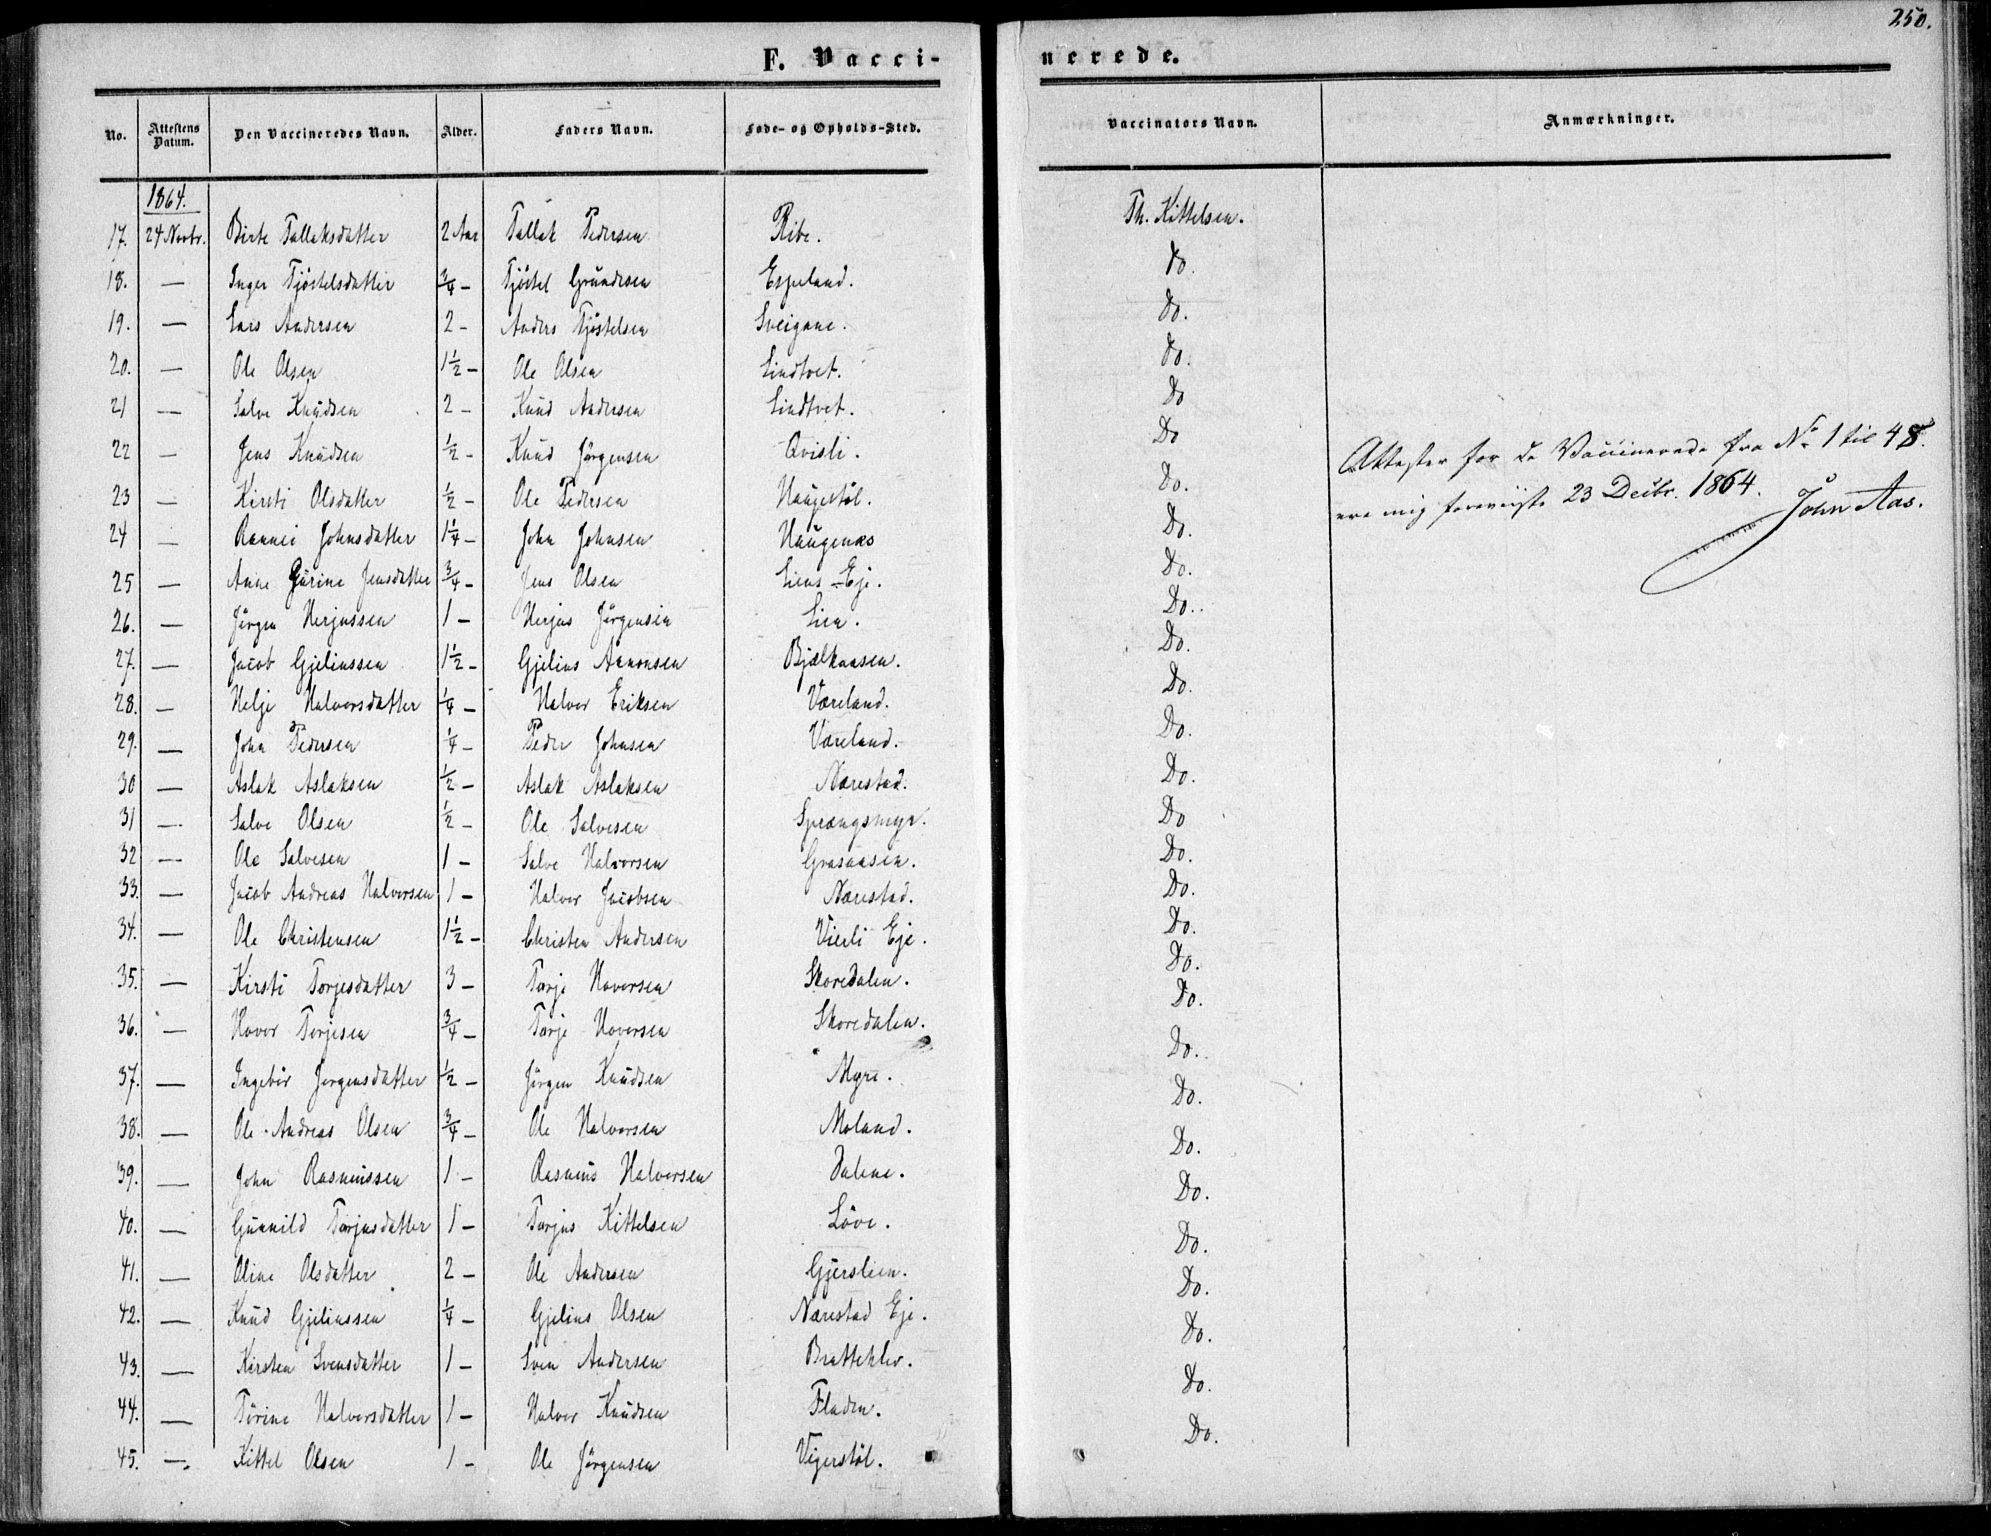 250.
F. Vacci-
nerede.
No. Attestens Datum. Den Vaccineredes Navn. Alder. Faders Navn. Føde- og Opholds-Sted. Vaccinators Navn. Anmærkninger.
1864.
17. 24 Novbr. Birte Tallaksdatter 2 Aar Tallak Pedersen Ribe. Th. Kittelsen.
18. — Inger Tjöstelsdatter ¾ — Tjöstel Gundersen Espeland. Do.
19. — Lars Andersen 2 — Anders Tjöstelsen Sveigane. Do.
20. — Ole Olsen 1½ — Ole Olsen Lindtvet. Do.
21 — Salve Knudsen 2 — Knud Andersen Lindtvet. Do
22 — Jens Knudsen ½ — Knud Jörgensen Qvisli. Do
23 — Kirsti Olsdatter ½ — Ole Pedersen Haugestöl. Do.
24 — Rannei Johnsdatter 1¼ — John Johnsen Haugenæs Do.
25 — Anne Gurine Jensdatter ¾ — Jens Olsen Liens Eje. Do.
26. — Jörgen Herjussen 1 — Herjus Jörgensen Lien. Do.
27. — Jacob Gjeliussen 1½ — Gjelius Aanonsen Bjælkaasen. Do.
28. — Helje Halvorsdatter ¼ — Halvor Eriksen Væreland. Do.
29. — John Pedersen ¼ — Peder Johnsen Væreland. Do.
30 — Aslak Aslaksen ½ — Aslak Aslaksen Nærestad. Do.
31 — Salve Olsen ½ — Ole Salvesen Sprængsmyr. Do
32 — Ole Salvesen 1 — Salve Halvorsen Grasaasen. Do.
33. — Jacob Andreas Halvorsen 1 — Halvor Jacobsen Nærestad. Do.
34. — Ole Christensen 1½ — Christen Andersen Vierli Eje. Do.
35. — Kirsti Torjesdatter 3 — Torje Hovorsen Skoredalen. Do.
36. — Hovor Torjesen ¾ — Torje Hovorsen Skoredalen. Do.
37. — Ingebör Jörgensdatter ½ — Jörgen Knudsen Myre. Do.
38. — Ole Andreas Olsen ¾ — Ole Halvorsen Moland. Do.
39. — John Rasmussen 1 — Rasmus Halvorsen Dalene. Do.
40. — Gunnild Torjusdatter 1 — Torjus Kittelsen Löve. Do.
41. — Oline Olsdatter 2 — Ole Andersen Gjerslien. Do.
42. — Knud Gjeliussen ¼ — Gjelius Olsen Nærestad Eje. Do.
43. — Kirsten Svensdatter 1 — Sven Andersen Bratteklev. Do.
44. — Torine Halvorsdatter 1 — Halvor Knudsen Fladen. Do.
45. — Kittel Olsen 1 — Ole Jörgensen Vigerstöl. Do.
Attester for de Vaccinerede fra No 1 til 48.
ere mig foreviiste 23 Decbr. 1864.
John Aas.